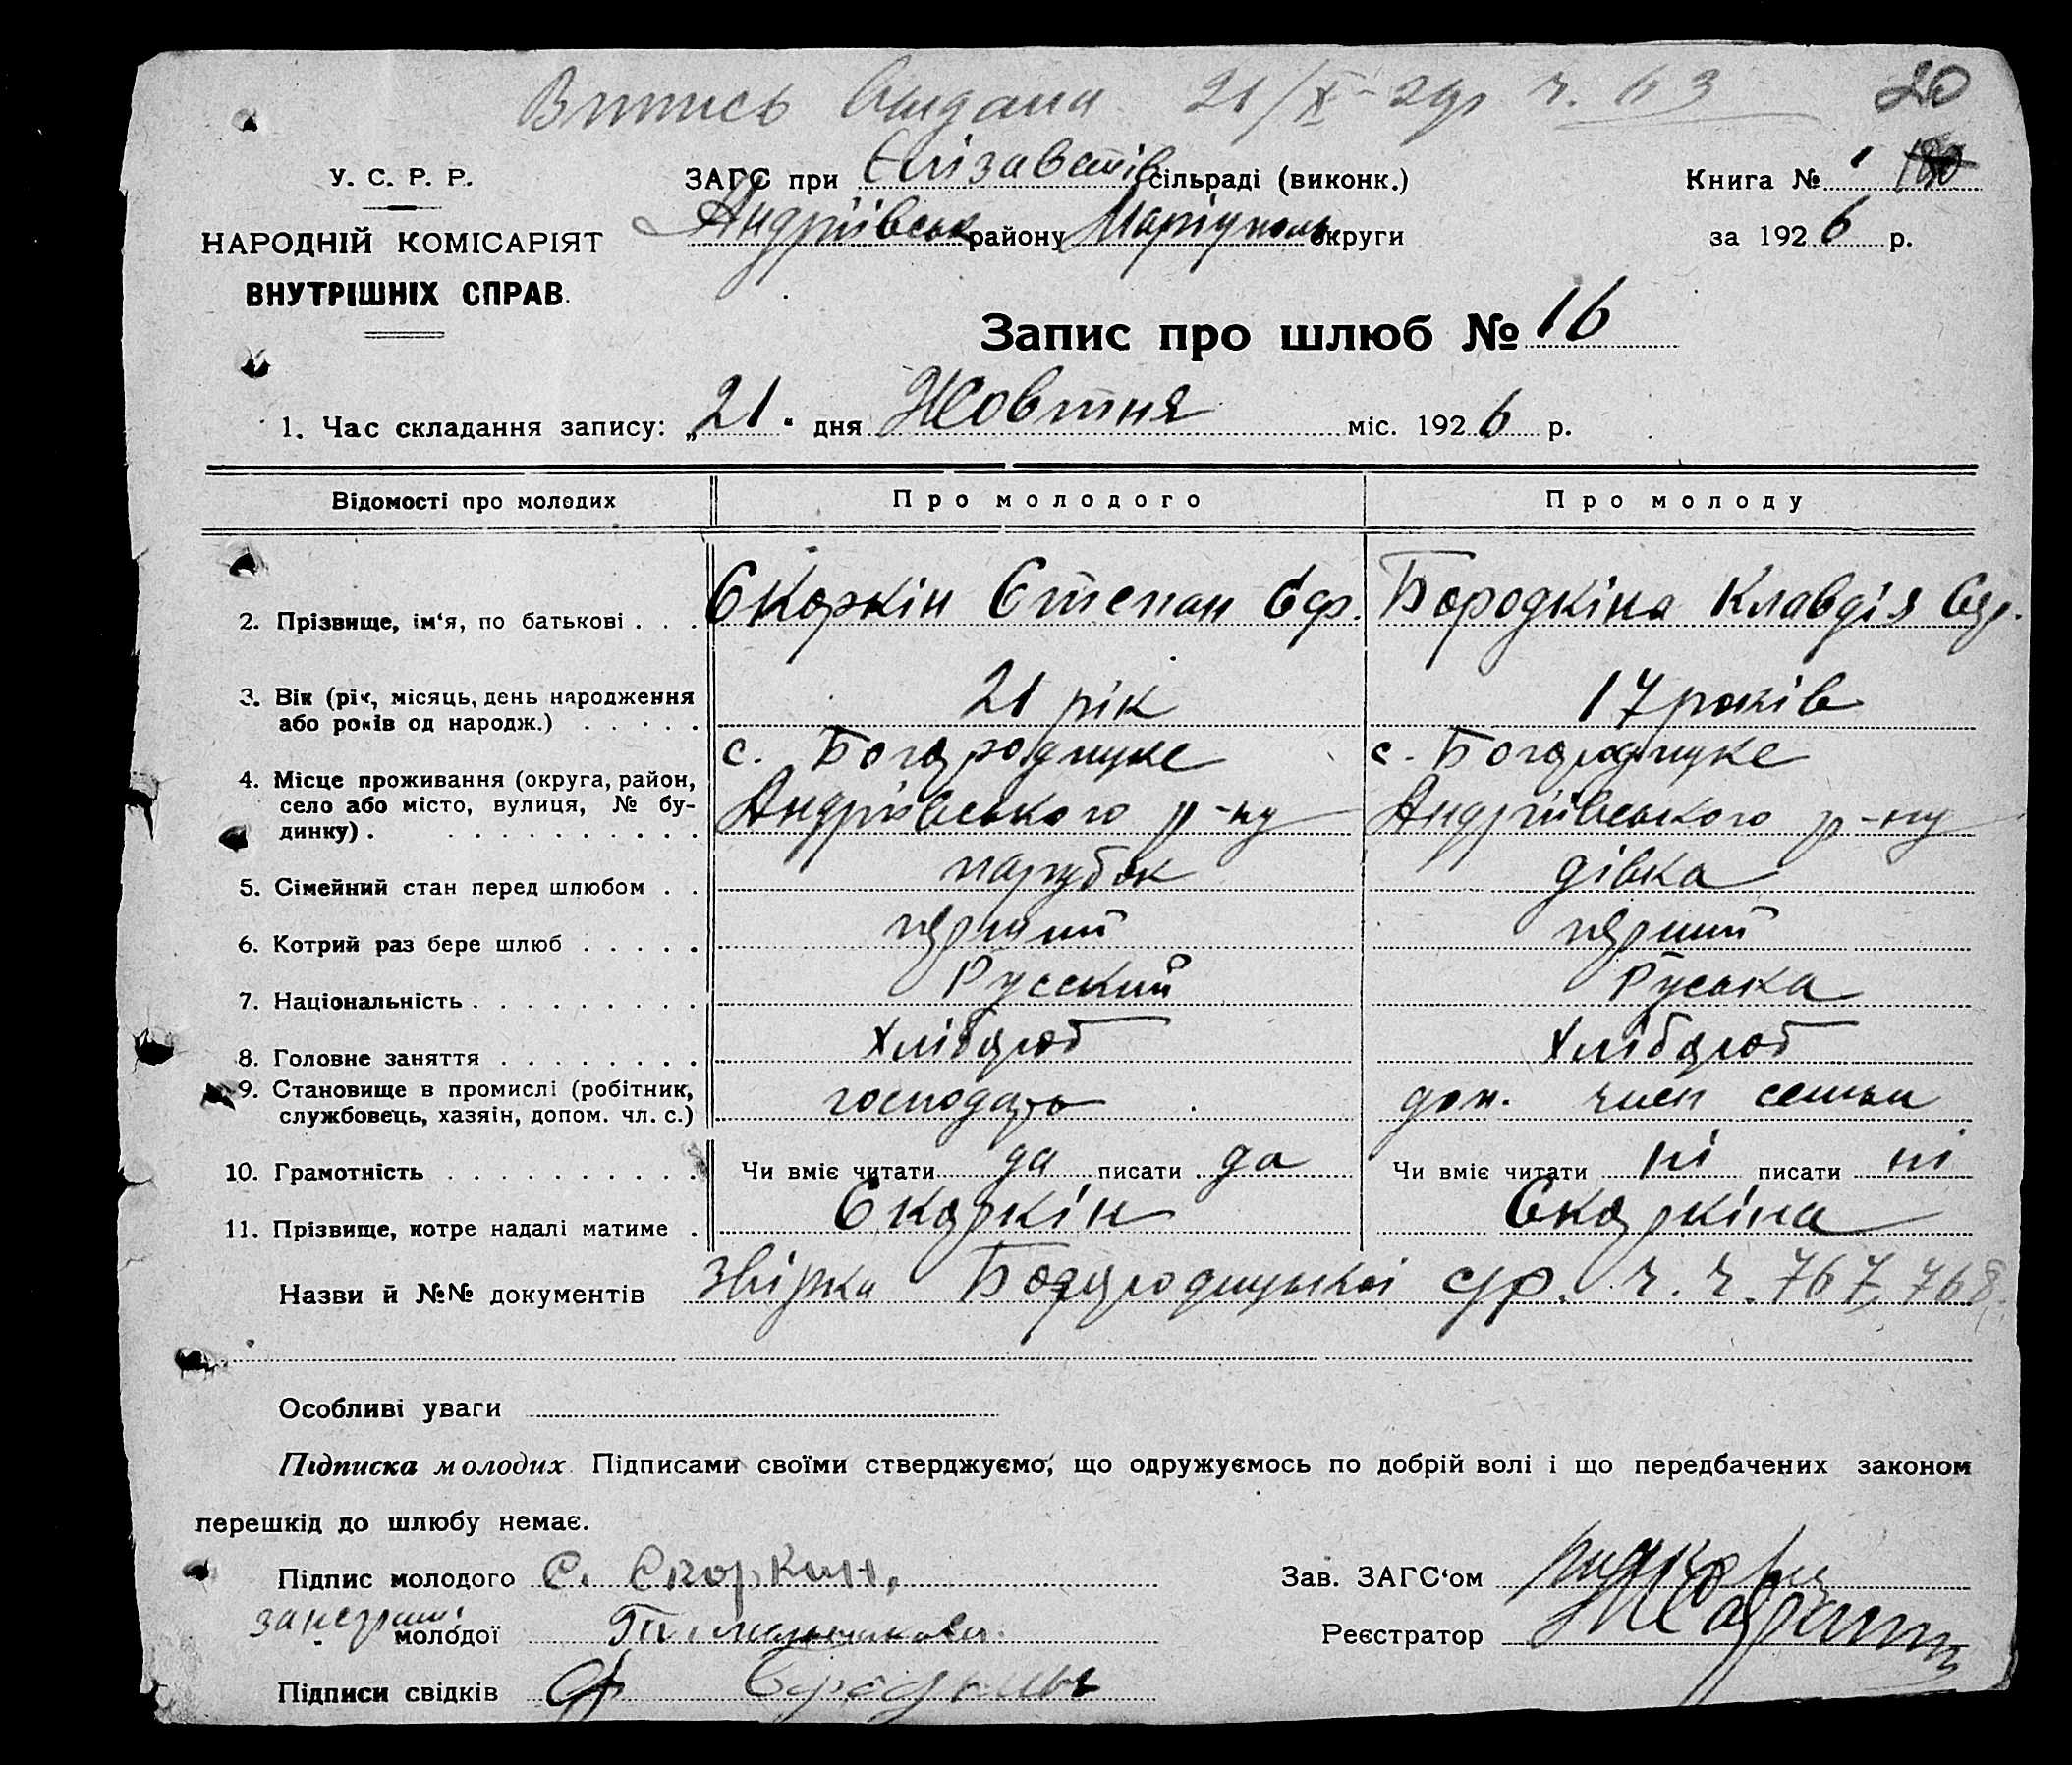 Витись видани 21/X-26р ч. 63 20
У. С. Р. Р. ЗАГС при Єлізаветів сільраді (виконк.) Книга № 1 180
НАРОДНІЙ КОМІСАРІЯТ Андріївськ району Маріуполь округи за 1926 р.
ВНУТРІШНІХ СПРАВ.
Запис про шлюб № 16
1. Час складання запису: „21" дня Жовтня міс. 1926 р.
Відомості про молодих Про молодого Про молоду
2. Прізвище, ім'я, по батькові . . . Скоркін Степан Єф. Бородкіна Клавдія
3. Вік (рік, місяць, день народження
або років од народж.) . . . . . 21 рік 17 років
с. Богородицке с. Богородицке
4. Місце проживання (округа, район,
село або місто, вулиця, № бу-
динку) . . . . . . . . . . . Андріївського р-ну Андріївського р-ну
5. Сімейний стан перед шлюбом . . парубок дівка
6. Котрий раз бере шлюб . . . . . перший перший
7. Національність . . . . . . . . . Русский Руська
8. Головне заняття . . . . . . . . Хлібороб Хлібороб
9. Становище в промислі (робітник,
службовець, хазяїн, допом. чл. с.) господарь доп. член семьи
10. Грамотність . . . . . . . . . . Чи вміє читати да писати да Чи вміє читати ні писати ні
11. Прізвище, котре надалі матиме . Скоркін Скоркіна
Назви й №№ документів Звірка Богородицької с/р. ч. ч. 767, 768
Особливі уваги
Підписка молодих Підписами своїми стверджуємо, що одружуємось по добрій волі і що передбачених законом
перешкід до шлюбу немає.
Підпис молодого С. Скоркин, Зав. ЗАГС'ом
молодої Реєстратор
Підписи свідків